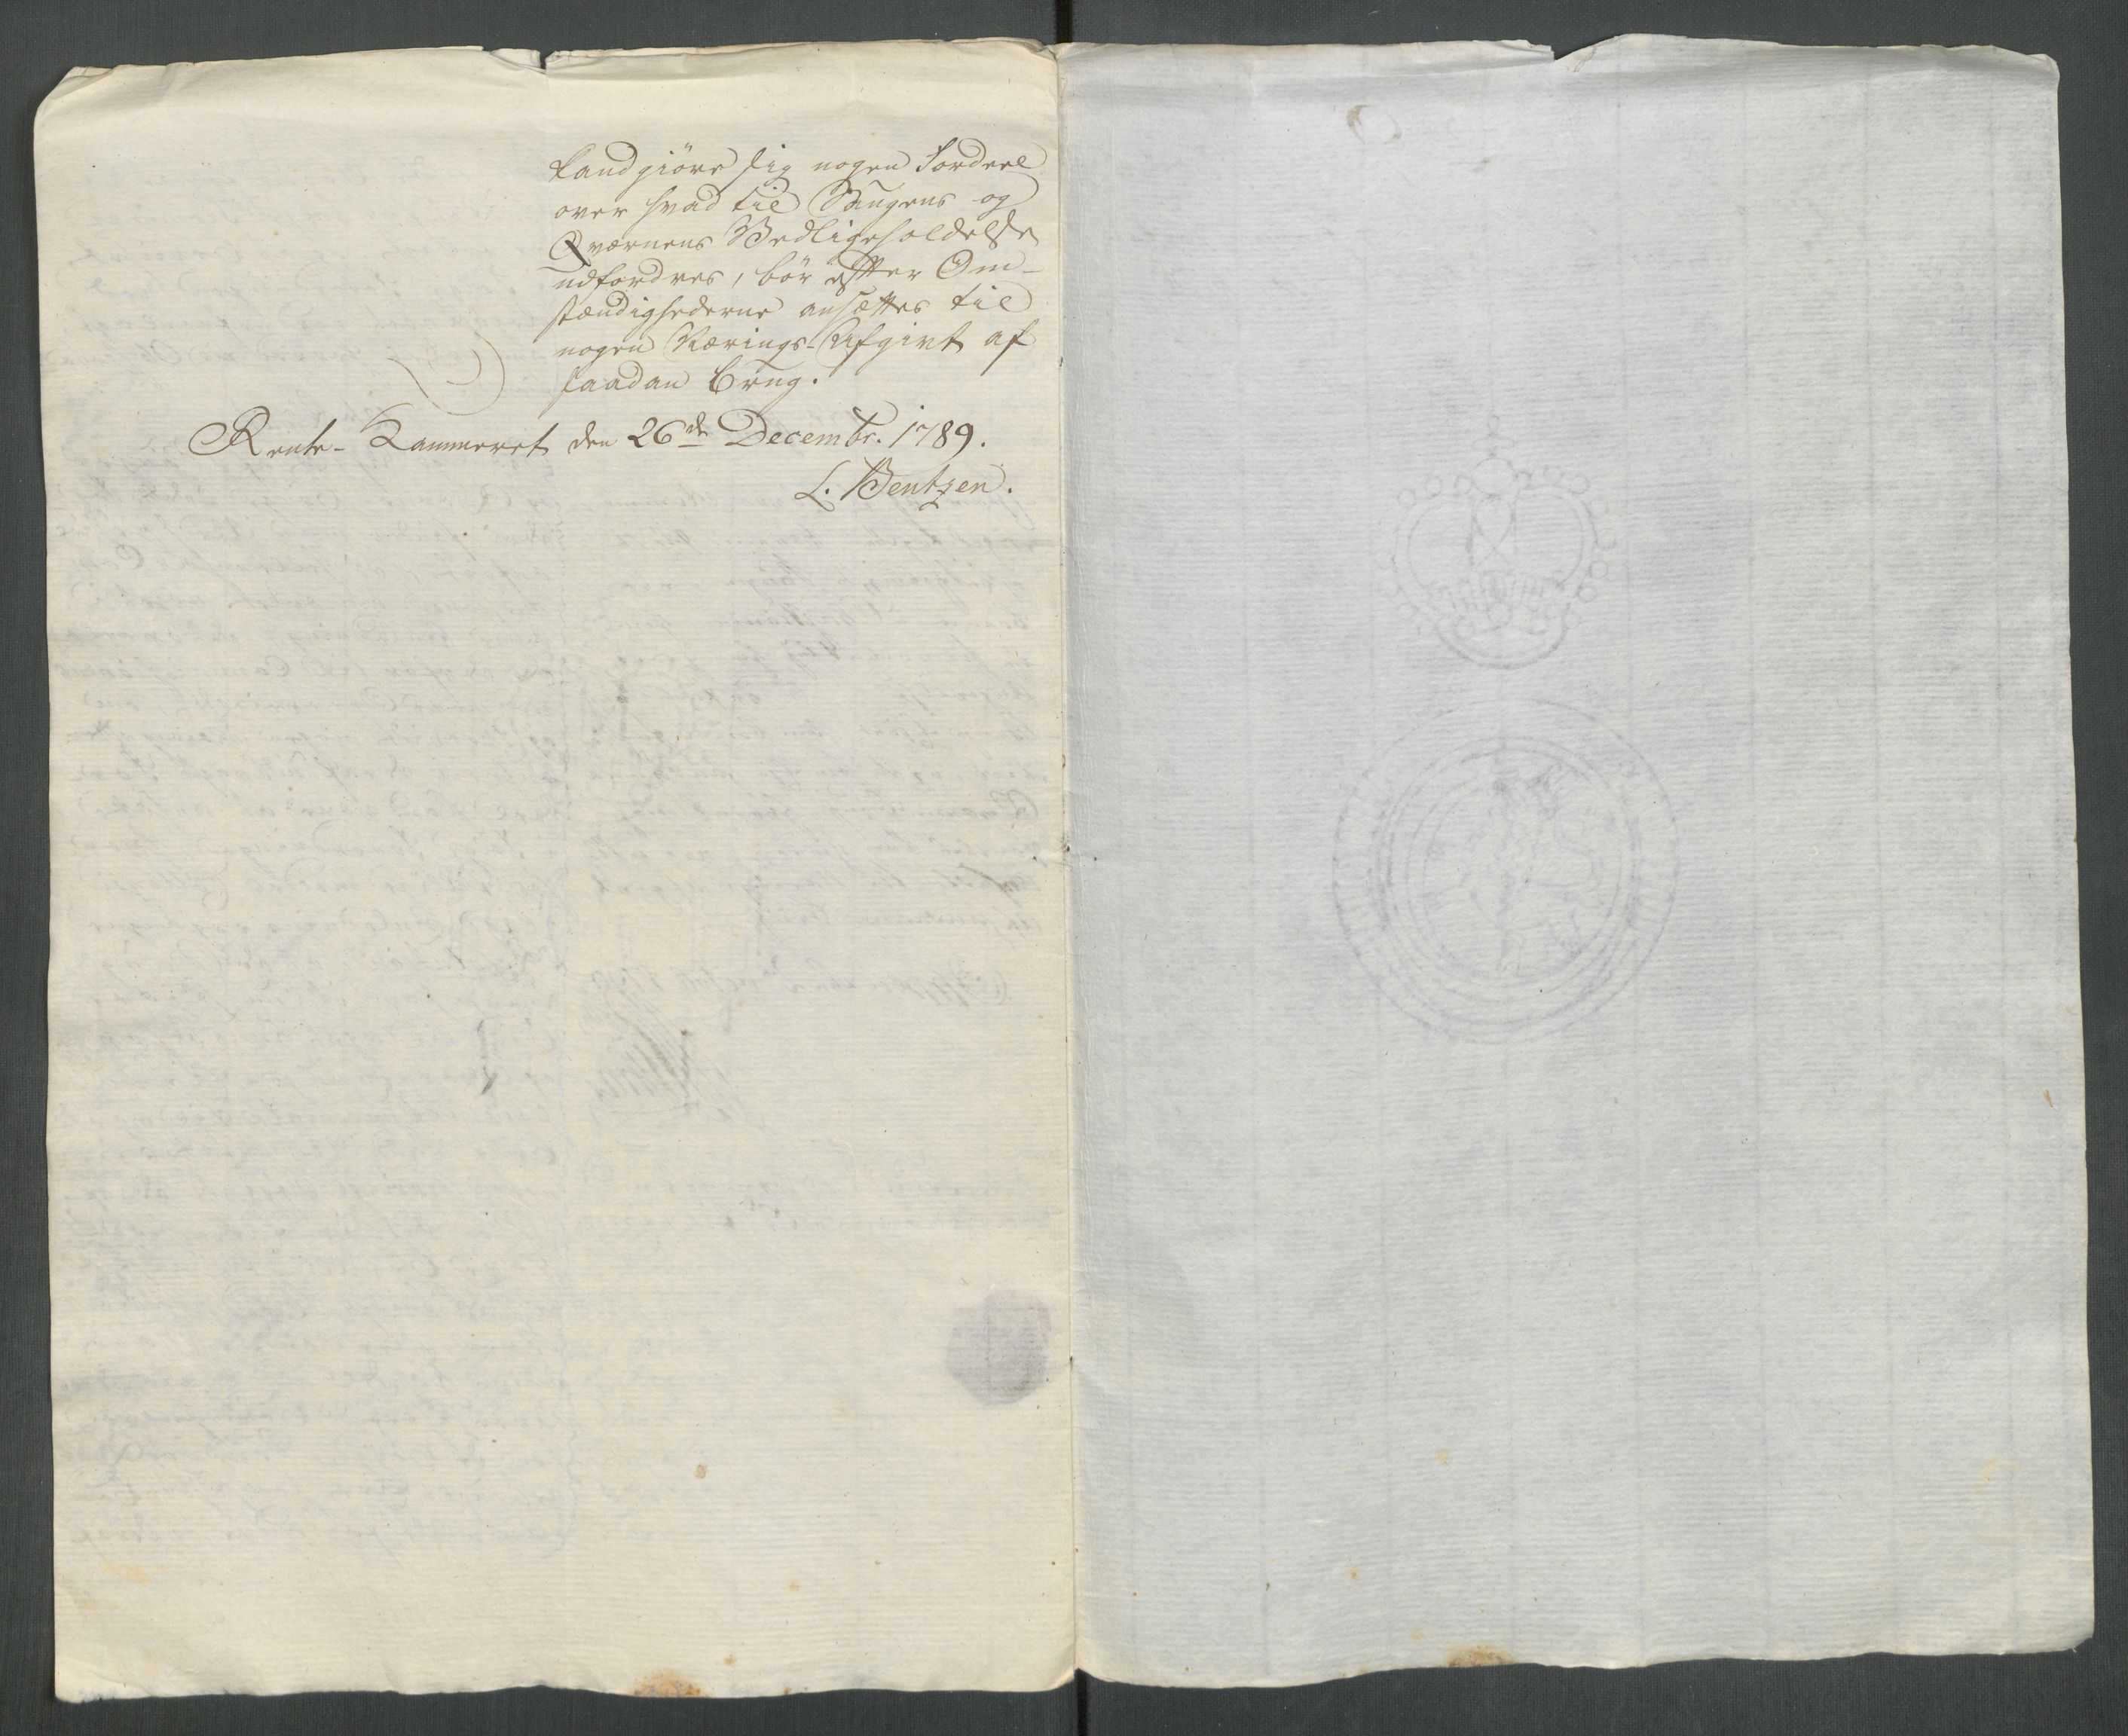 kand giøre sig nogen Fordeel
over hvad til Saugens og
Qværnens Vedligeholdelse
udfordres, bør efter Om-
stændighederne ansættes til
nogen Nærings-Afgivt af
saadan Brug.
Rente-Kammeret den 26de Decembr. 1789.
L. Bentzen.